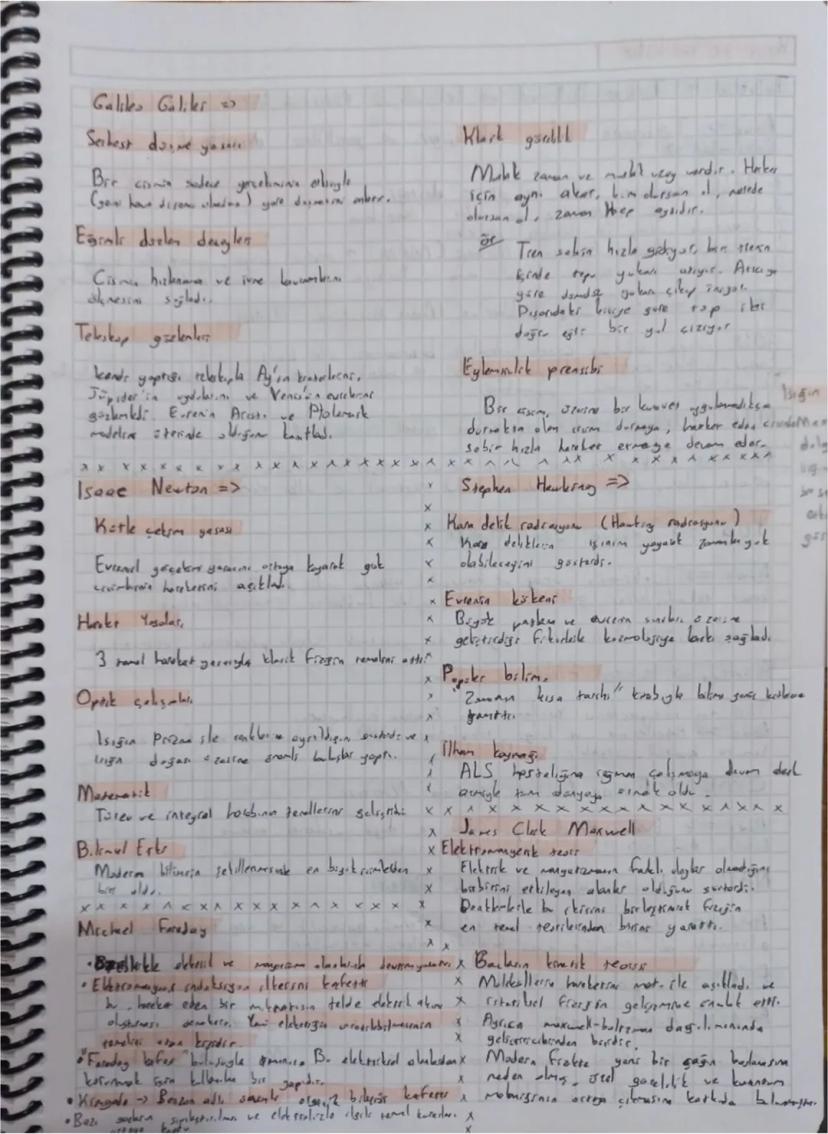 Galileo Galilei =>
Serbest düşme yasası
Bir cismin sadece yerçekiminin etkisiyle
(yani hava direnci olmadan) yere düşmesini
Eğimli düzlem deneyleri
Cismin hızlanma ve ivme kavramlarını
ölçmesini sağladı.
Teleskop gözlemleri
kendi yaptığı teleskopla Ay'ın kraterlerini,
Jüpiter'in uydularını ve Venüs'ün evrelerini
gözlemledi. Evrenin Aristo ve Ptolemaik
modelin üzerinde olduğunu kanıtladı.
Klasik görelilik
Mutlak zaman ve mutlak uzay vardır. Herkes
için aynı akar, kim olursan ol, nerede
olursan ol, zaman Hep aynıdır.
ör
Tren sabit hızla gidiyor, ben trenin
içinde topu yukarı atıyor.
göre dümdüz yukarı çıkıp iniyor.
Dışarıdaki kişiye göre top
doğru eğri bir yol çiziyor
Eylemsizlik prensibi
Bir cisim, üzerine bir kuvvet uygulanmadıkça
durmakta olan cisim durmaya, hareket eden
sabit hızla hareket etmeye devam eder.
Işığın
Isaac Newton =>
Kütle çekim yasası
Evrensel çekim yasasını ortaya koyarak gök
cisimlerinin hareketini açıkladı.
Hareket Yasaları
3 temel hareket yasasıyla klasik fiziğin temelini attı
Optik çalışmaları
Işığın Prizma ile renklerine ayrıldığını gösterdi ve
ışığın doğası üzerine önemli buluşlar yaptı.
Matematik
Türev ve integral hesabının temellerini geliştirdi
Bilimsel Etki
Modern bilimin şekillenmesinde en büyük isimlerden
biri oldu.
Stephen Hawking =>
Kara delik radrasyonu (Hawking radrasyonu)
Kara deliklerin ışınım yayarak zamanla yok
olabileceğini gösterdi.
Evrenin kökeni
Büyük patlama ve evrenin sınırları üzerine
geliştirdiği fikirlerle kozmolojiye katkı sağladı.
Popüler bilim.
"Zamanın kısa tarihi" kitabıyla bilimi geniş kitlelere
tanıttı.
İlham kaynağı
ALS hastalığına rağmen çalışmaya devam
etmesiyle tüm dünyaya örnek oldu.
James Clerk Maxwell
Elektromanyetik teori
Elektrik ve manyetizmanın farklı olaylar olmadığını
birbirini etkileyen alanlar olduğunu gösterdi.
Denklemlerle bu ikisini birleştirerek fiziğin
en temel teorilerinden birini yarattı.
Gazların kinetik teorisi
Moleküllerin hareketini mat. ile açıkladı ve
istatiksel fiziğin gelişimine öncülük etti.
Ayrıca maxwell-boltzman dağılımınında
geliştiricilerinden biridir.
Modern fizikte yeni bir çağın başlamasına
neden olmuş, özel görelilik ve kuantum
ortaya çıkmasına katkıda bulunmuştur.
Michael Faraday
elektrik ve manyetizma alanlarında
• Elektromanyetik indüksiyon ilkesini keşfetti
bu, hareket eden bir mıknatısın telde elektrik akımı
oluşturması demektir. Yani elektriğin üretilebilmesinin
temelini atan kişidir.
• "Faraday kafesi" buluşuyla tanınır. Bu elektriksel alanlardan
korunmak için kullanılan bir yapıdır.
• Kimyada -> Benzen adlı önemli organik bileşiği keşfetti
• Bazı gazların sıvılaştırılması ve elektrolizle ilgili temel kuralları